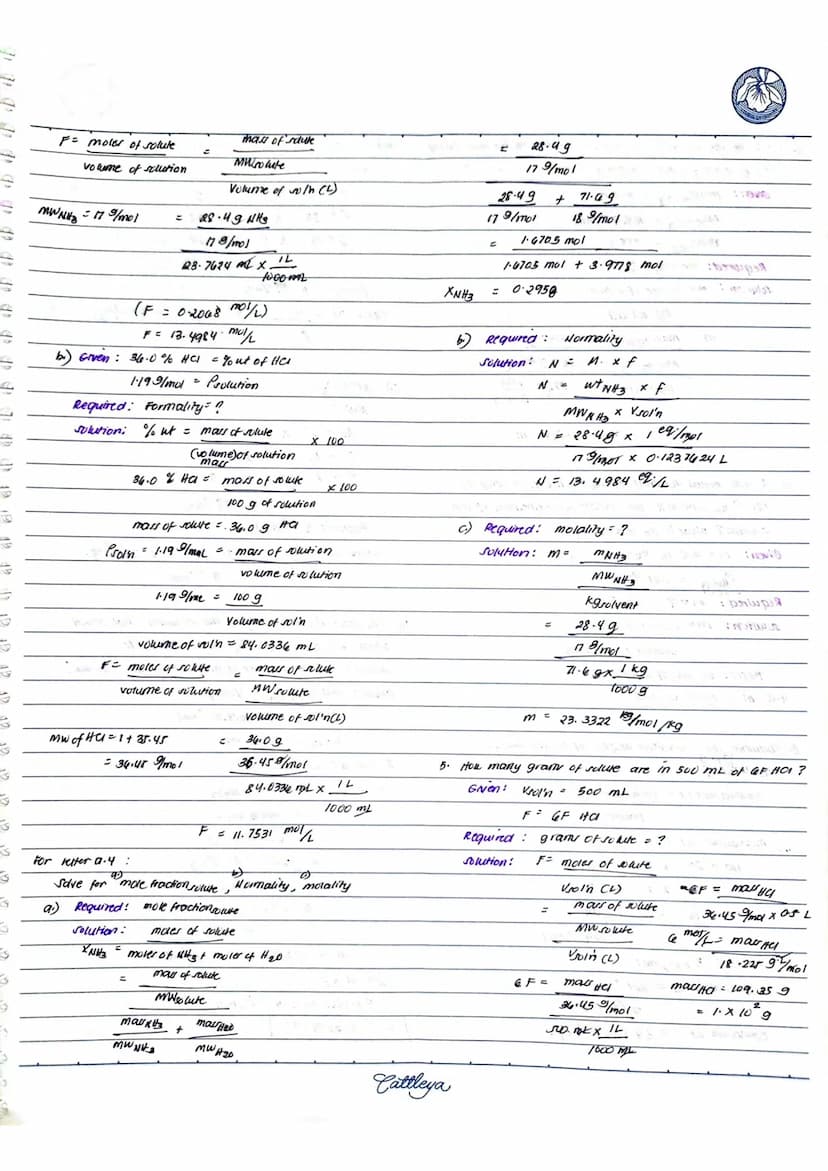 F = moles of solute = mass of solute
volume of solution MWsolute
Volume of sol'n (L)
MW NH3 = 17 g/mol = 28.4 g NH3
17 g/mol
123.7624 mL × 1L
1000 mL
(F = 0.2068 mol/L)
F = 13.4984 mol/L
b.) Given : 36.0 % HCl = % wt of HCl
1.19 g/mol = ρsolution
Required : Formality = ?
Solution : % wt = mass of solute × 100
(volume) of solution
mass
36.0 % HCl = mass of solute × 100
100 g of solution
mass of solute = 36.0 g HCl
ρsol'n = 1.19 g/mL = mass of solution
volume of solution
1.19 g/mL = 100 g
Volume of sol'n
volume of sol'n = 84.0336 mL
F = moles of solute = mass of solute
volume of solution MW solute
volume of sol'n (L)
MW of HCl = 1 + 35.45 = 36.0 g
= 36.45 g/mol 36.45 g/mol
84.0336 mL × 1L
1000 mL
F = 11.7531 mol/L
For letter a.4 :
Solve for a) mole fraction solute, b) Normality, c) molality
a.) Required : mole fraction solute
Solution : moles of solute
XNH3 = moles of NH3 + moles of H2O
= mass of solute
MWsolute
massNH3 + massH2O
MWNH3 MWH2O
= 28.4 g
17 g/mol
28.4 g + 71.6 g
17 g/mol 18 g/mol
= 1.6705 mol
1.6705 mol + 3.9778 mol
XNH3 = 0.2958
b) Required : Normality
Solution : N = M × f
N = wt NH3 × f
MW NH3 × Vsol'n
N = 28.4 g × 1 eq/mol
17 g/mol × 0.1237624 L
N = 13.4984 eq/L
c) Required : molality = ?
Solution : m = mNH3
MWNH3
kgsolvent
= 28.4 g
17 g/mol
71.6 g × 1 kg
1000 g
m = 23.3322 mol/kg
5. How many grams of solute are in 500 mL of 6F HCl ?
Given : Vsol'n = 500 mL
F = 6F HCl
Required : grams of solute = ?
Solution : F = moles of solute
Vsol'n (L)
= mass of solute
MW solute
Vsol'n (L)
6 F = mass HCl
36.45 g/mol
500 mL × 1L
1000 mL
6F = mass HCl
36.45 g/mol × 0.5 L
6 mol/L = mass HCl
18.225 g L/mol
mass HCl = 109.35 g
= 1. × 10² g
Cattleya